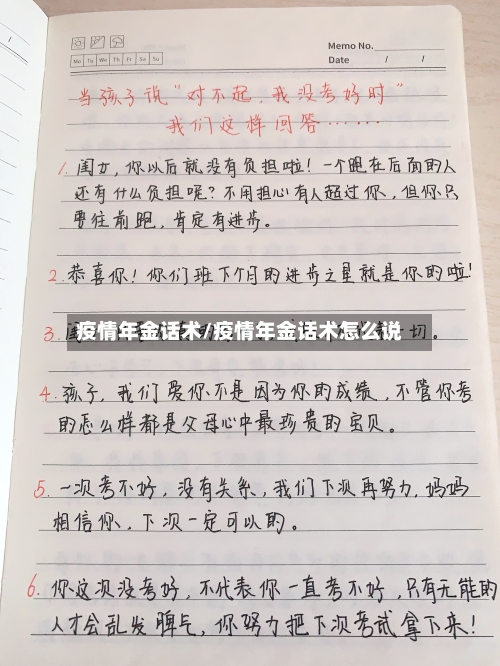 Memo No.
Mo Tu We Th Fr Sa Su
Date / /
当孩子说“对不起,我没考好时”
我们这样回答……
1. 闺女,你以后就没有负担啦!一个跑在后面的人
还有什么负担呢?不用担心有人超过你,但你只
要往前跑,肯定有进步。
2. 恭喜你!你们班下个月的进步之星就是你的啦!
3.
切。
疫情年金话术/疫情年金话术怎么说
4. 孩子,我们爱你不是因为你的成绩,不管你考
的怎么样都是父母心中最珍贵的宝贝。
5. 一次考不好,没有关系,我们下次再努力,妈妈
相信你,下次一定可以的。
6. 你这次没考好,不代表你一直考不好,只有无能的
人才会乱发脾气,你努力把下次考试拿下来!